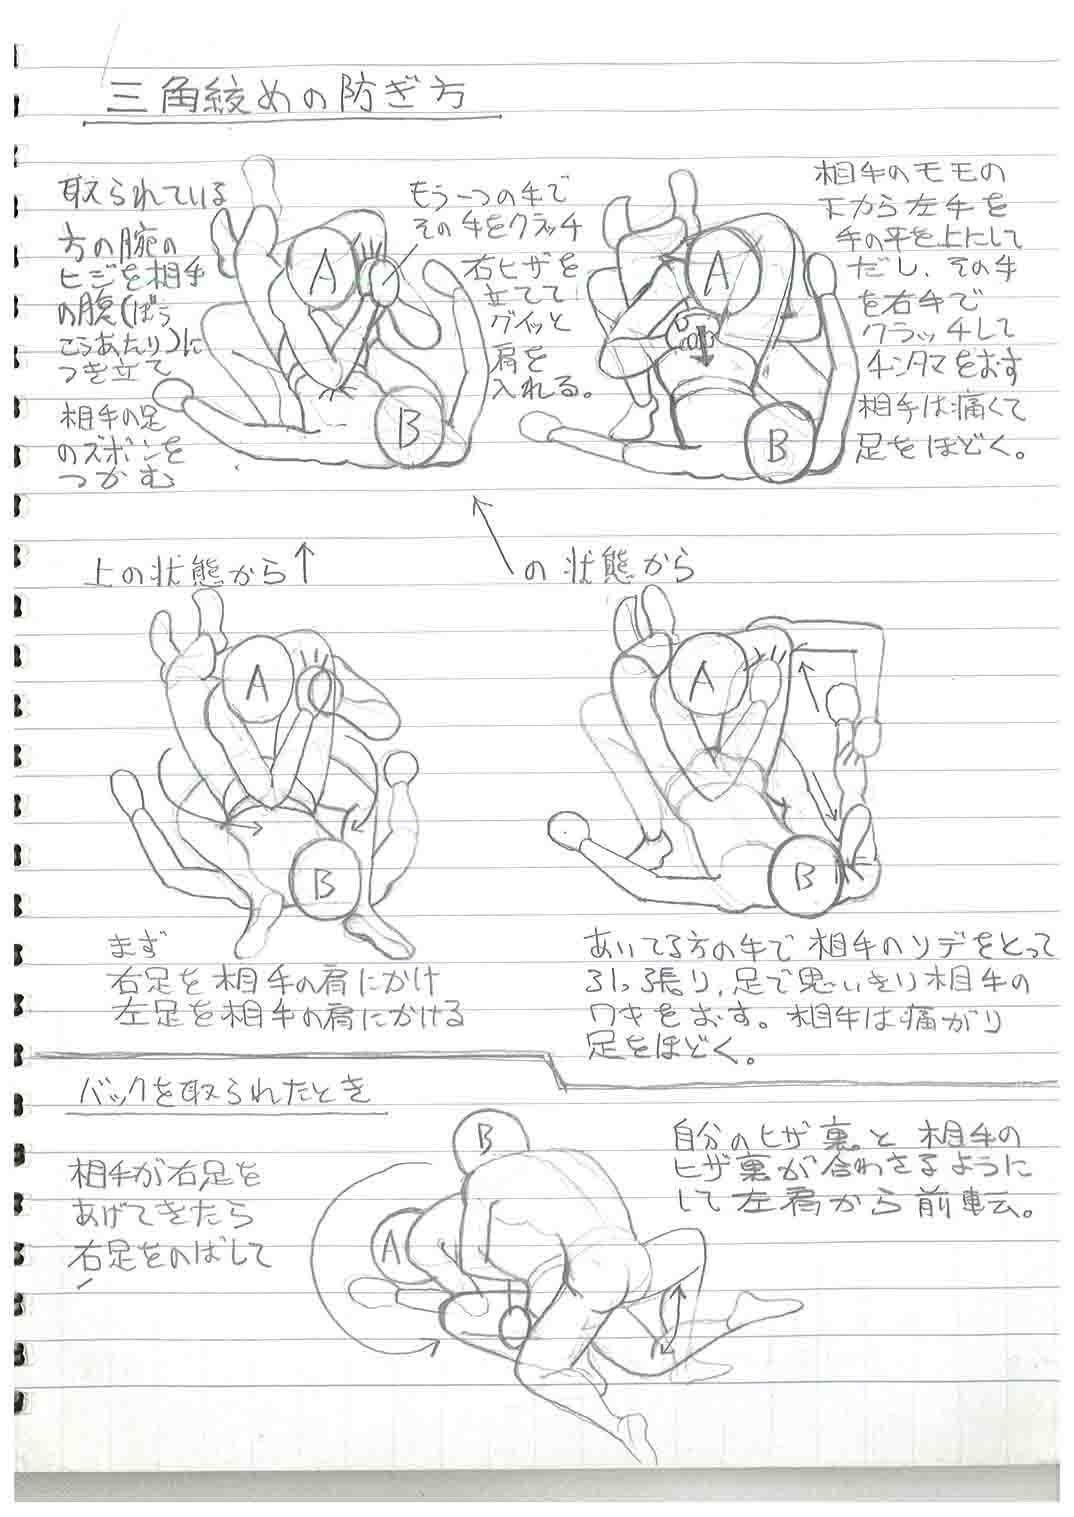 三角絞めの防ぎ方
取られている
方の腕の
ヒジを相手
の腹(ぼう
こうあたり)に
つき立て
相手の足
のズボンを
つかむ
もう一つの手で
その手をクラッチ
右ヒザを
立てて
グイッと
肩を
入れる。
A
B
相手のモモの
下から左手を
手の平を上にして
だし、その手
を右手で
クラッチして
チンタマをおす
相手は痛くて
足をほどく。
A
B
上の状態から↑
の状態から
A
B
まず
右足を相手の肩にかけ
左足を相手の肩にかける
A
B
あいてる方の手で相手のソデをとって
引っ張り、足で思いきり相手の
ワキをおす。相手は痛がり
足をほどく。
バックを取られたとき
相手が右足を
あげてきたら
右足をのばして
B
A
自分のヒザ裏と相手の
ヒザ裏が合わさるように
して左肩から前転。